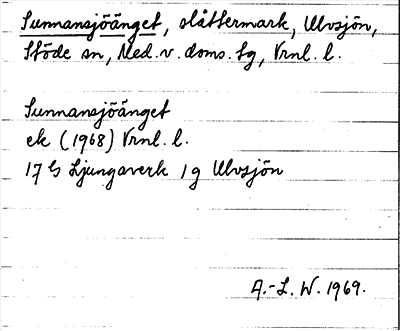 Sunnansjöänget, slåttermark, Ulvsjön,
Stöde sn, Med.v.doms.tg, Vrnl. l.
Sunnansjöänget
ek (1968) Vrnl. l.
17 G Ljungaverk 1 g Ulvsjön
A.-L. W. 1969.